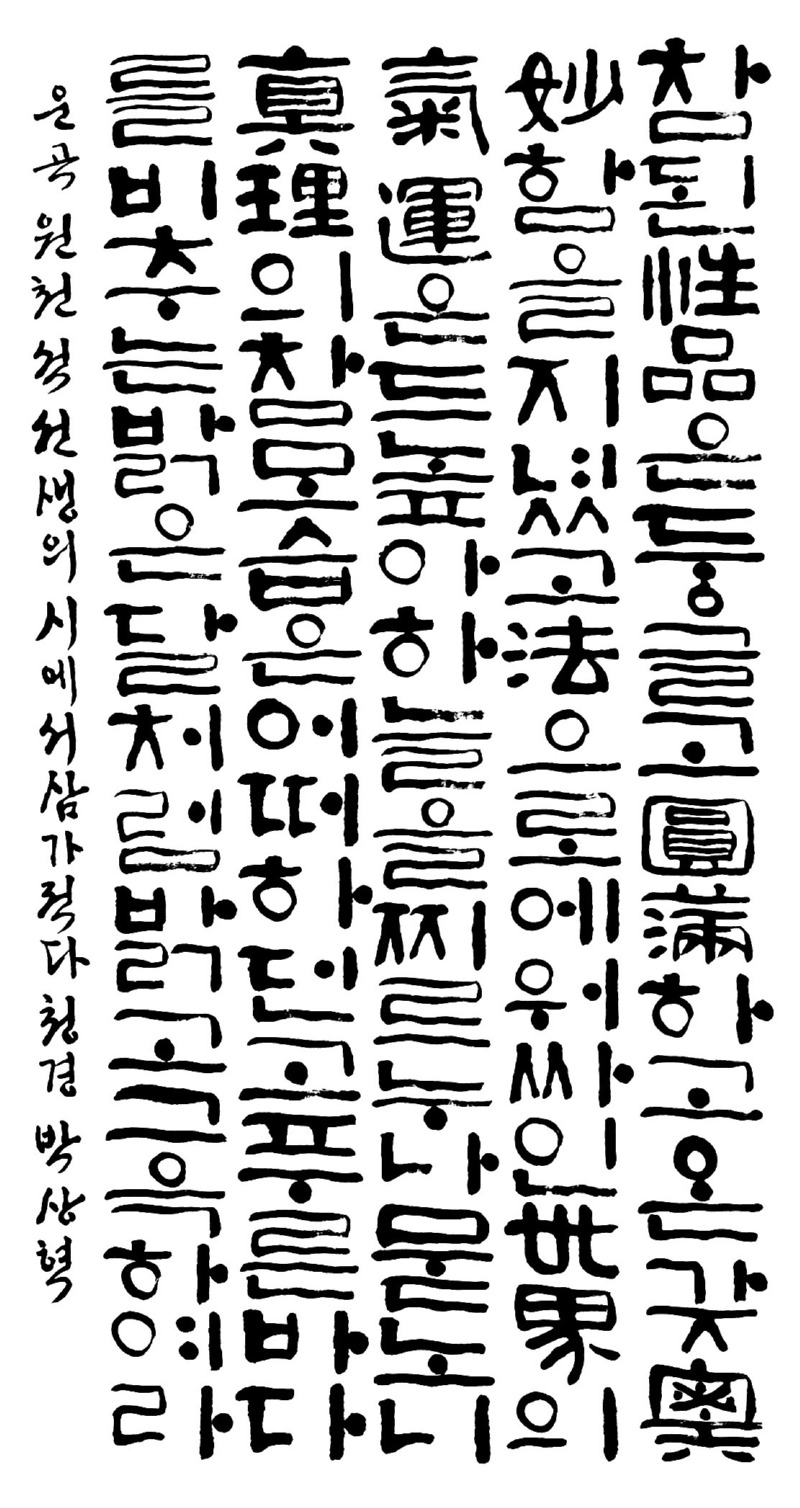 참된性品은둥글고圓滿하고온갖奧
妙함을지녔고法으로에워싸인世界의
氣運은드높아하늘을찌르누나묻노니
真理의참모습은어떠하던고푸른바다
를비추는밝은달처럼밝고그윽하여라
운곡 원천석 선생의 시에서 삼가 적다 청경 박상혁